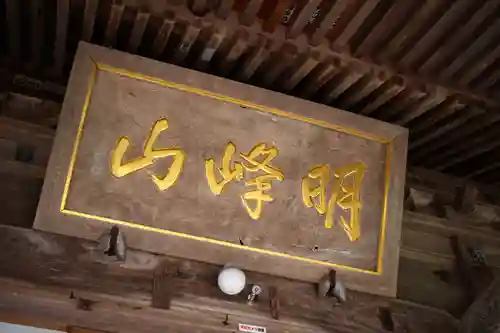 山峰明